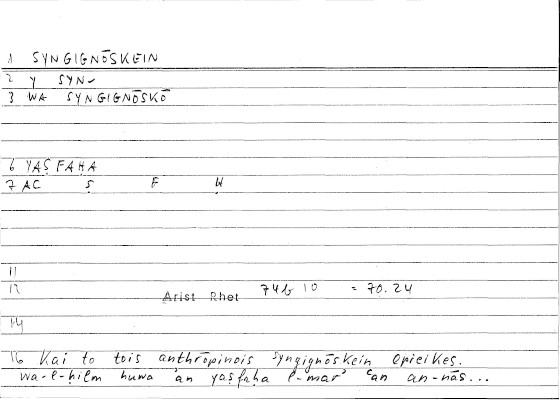 1 SYNGIGNŌSKEIN
2 Y SYN-
3 WA SYNGIGNŌSKŌ
6 YAṢFAḤA
7 AC Ṣ F Ḥ
11
12 Arist Rhet 74b 10 = 70.24
14
16 Kai to tois anthrōpinois syngignōskein epieikes.
wa-l-ḥilm huwa 'an yaṣfaḥa l-mar' ʿan an-nās...